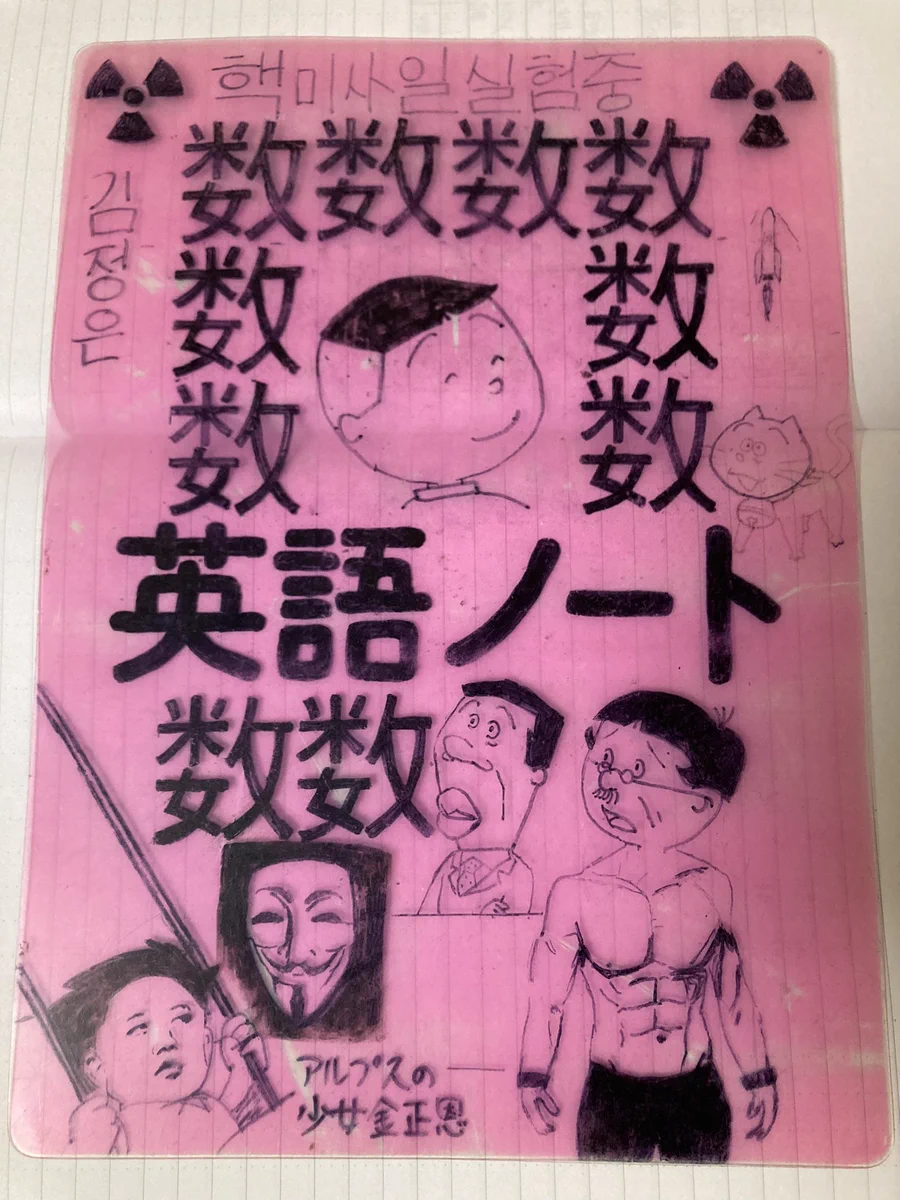 핵미사일실험중
김정은
数数数数
数 数
数 数
英語ノート
数数
アルプスの
少女金正恩